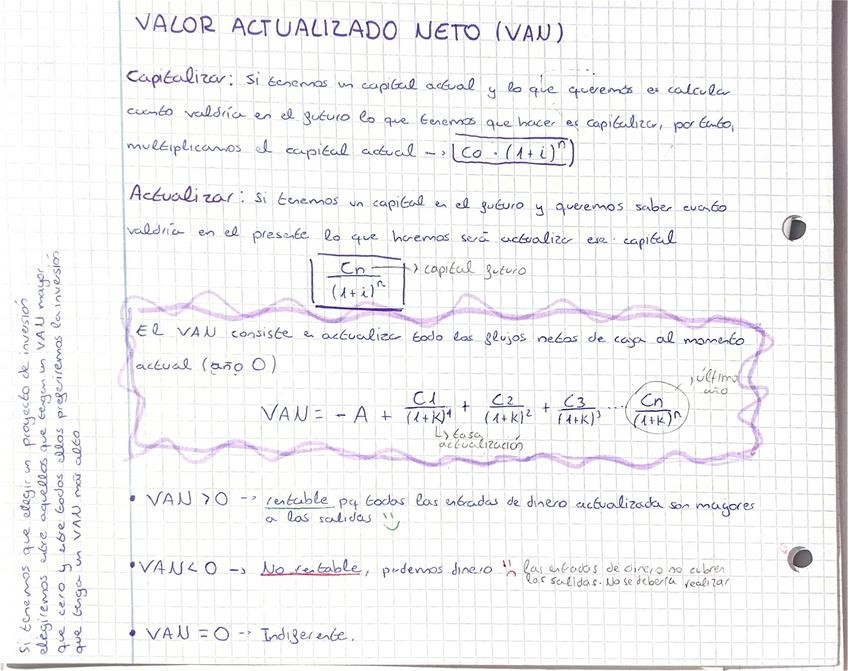 VALOR ACTUALIZADO NETO (VAN)
Capitalizar: Si tenemos un capital actual y lo que queremos es calcular
cuanto valdría en el futuro lo que tenemos que hacer es capitalizar, por tanto,
multiplicamos el capital actual → Co · (1+i)^n
Actualizar: Si tenemos un capital en el futuro y queremos saber cuanto
valdría en el presente lo que haremos será actualizar ese capital
Cn → capital futuro
(1+i)^n
El VAN consiste en actualizar todo los flujos netos de caja al momento
actual (año 0)
VAN = -A + C1/(1+K)^1 + C2/(1+K)^2 + C3/(1+K)^3 ... Cn/(1+K)^n
último
año
↳ tasa
actualización
• VAN > 0 → rentable pq todas las entradas de dinero actualizada son mayores
a las salidas
• VAN < 0 → No rentable, perdemos dinero las entradas de dinero no cubren
las salidas. No se debería realizar
• VAN = 0 → Indiferente.
Si tenemos que elegir un proyecto de inversión
elegiremos entre aquellos que tengan un VAN mayor
que cero y entre todos ellos preferiremos la inversión
que tenga un VAN más alto